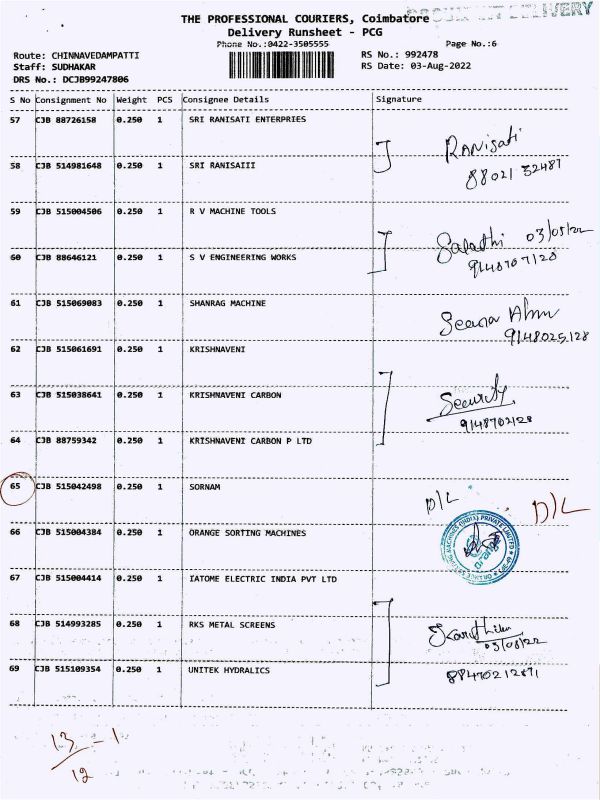 THE PROFESSIONAL COURIERS, Coimbatore
DELIVERY
Delivery Runsheet - PCG
Phone No.:0422-3505555
Page No.:6
Route: CHINNAVEDAMPATTI
RS No.: 992478
Staff: SUDHAKAR
RS Date: 03-Aug-2022
DRS No.: DCJB99247806
S No Consignment No Weight PCS Consignee Details Signature
57 CJB 88726158 0.250 1 SRI RANISATI ENTERPRIES
Ranisati
88021 32487
58 CJB 514981648 0.250 1 SRI RANISAIII
59 CJB 515004506 0.250 1 R V MACHINE TOOLS
03/08/22
60 CJB 88646121 0.250 1 S V ENGINEERING WORKS
9148707128
61 CJB 515069083 0.250 1 SHANRAG MACHINE
9148025128
62 CJB 515061691 0.250 1 KRISHNAVENI
63 CJB 515038641 0.250 1 KRISHNAVENI CARBON
Security
9148702128
64 CJB 88759342 0.250 1 KRISHNAVENI CARBON P LTD
65 CJB 515042498 0.250 1 SORNAM
D/L
D/L
66 CJB 515004384 0.250 1 ORANGE SORTING MACHINES
67 CJB 515004414 0.250 1 IATOME ELECTRIC INDIA PVT LTD
68 CJB 514993285 0.250 1 RKS METAL SCREENS
03/08/22
69 CJB 515109354 0.250 1 UNITEK HYDRALICS
13 - 1
12